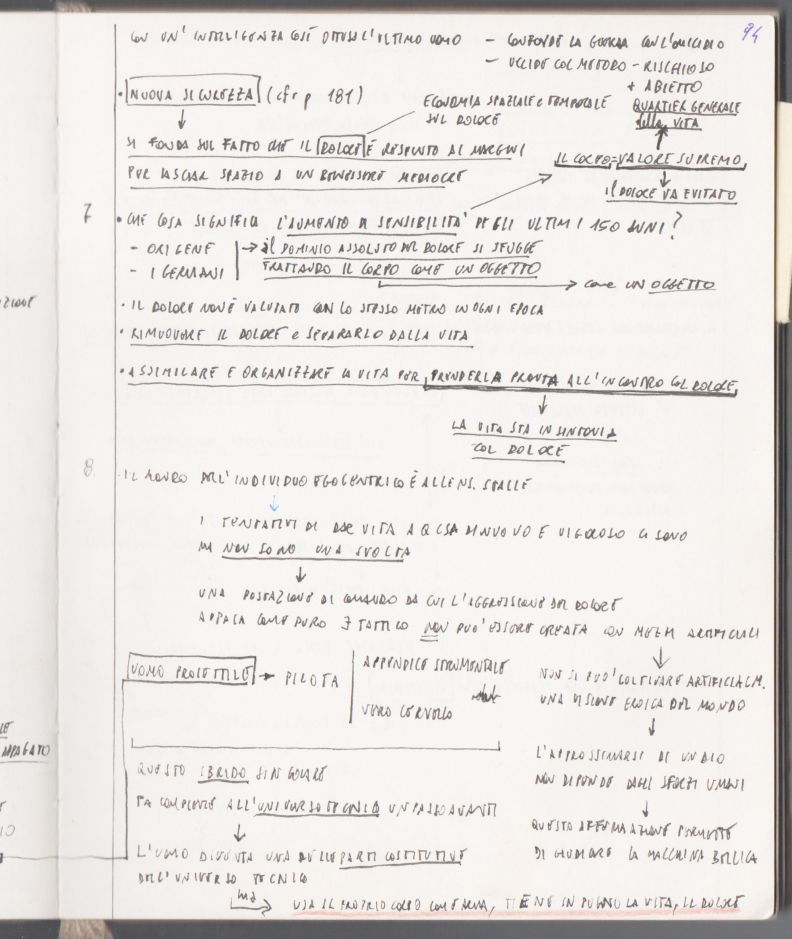 94
CON UN' INTELLIGENZA COSÌ OTTUSA L'ULTIMO UOMO
- CONFONDE LA GUERRA CON L'OMICIDIO
- UCCIDE COL METODO - RISCHIOSO
+ ABIETTO
• NUOVA SICUREZZA (cfr p 181)
ECONOMIA SPAZIALE e TEMPORALE
SUL DOLORE
QUARTIER GENERALE
della VITA
SI FONDA SUL FATTO CHE IL DOLORE È RESPINTO AI MARGINI
PER LASCIAR SPAZIO A UN BENESSERE MEDIOCRE
IL CORPO = VALORE SUPREMO
IL DOLORE VA EVITATO
7
• CHE COSA SIGNIFICA L'AUMENTO DI SENSIBILITÀ DEGLI ULTIMI 150 ANNI?
- ORIGENE
- I GERMANI
il DOMINIO ASSOLUTO DEL DOLORE SI SFUGGE
TRATTANDO IL CORPO COME UN OGGETTO
come UN OGGETTO
• IL DOLORE NON È VALUTATO CON LO STESSO METRO IN OGNI EPOCA
• RIMUOVERE IL DOLORE e SEPARARLO DALLA VITA
• ASSIMILARE E ORGANIZZARE LA VITA PER PRENDERLA PRONTA ALL'INCONTRO COL DOLORE
LA VITA STA IN SINTONIA
COL DOLORE
8.
• IL DELL'INDIVIDUO EGOCENTRICO È ALLE NS. SPALLE
I TENTATIVI DI DAR VITA A QCSA DI NUOVO E VIGOROSO CI SONO
MA NON SONO UNA SVOLTA
UNA POSTAZIONE DI COMANDO DA CUI L'AGGRESSIONE DEL DOLORE
APPAIA COME PURO TATTICO NON PUO' ESSERE CREATA CON MEZZI ARTIFICIALI
UOMO PROIETTILE → PILOTA
APPENDICE STRUMENTALE
VERO CERVELLO
NON SI PUO' COLTIVARE ARTIFICIALM.
UNA VISIONE EROICA DEL MONDO
L'APPROSSIMARSI DI UN DIO
NON DIPENDE DAGLI SFORZI UMANI
QUESTO IBRIDO SINGOLARE
FA COMPIERE ALL'UNIVERSO TECNICO UN PASSO AVANTI
QUESTA AFFERMAZIONE PERMETTE
DI GIUDICARE LA MACCHINA BELLICA
L'UOMO DIVENTA UNA DELLE PARTI COSTITUTIVE
DELL'UNIVERSO TECNICO
ma
USA IL PROPRIO CORPO COME ARMA, TIENE IN PUGNO LA VITA, IL DOLORE
APPAGATO